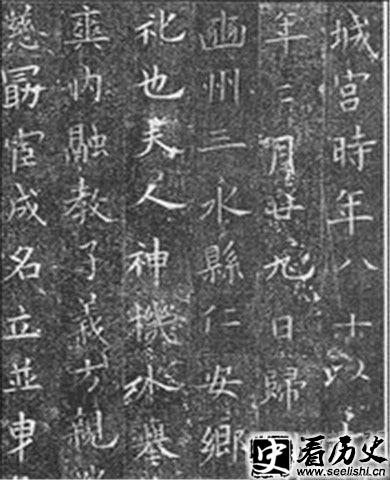 城宮時年八十以
年三月廿九日歸
豳州三水縣仁安鄉
礼也夫人神機外舉
爽内融教子義方親
慈勗宦成名立並申
史看历史
www.seelishi.cn